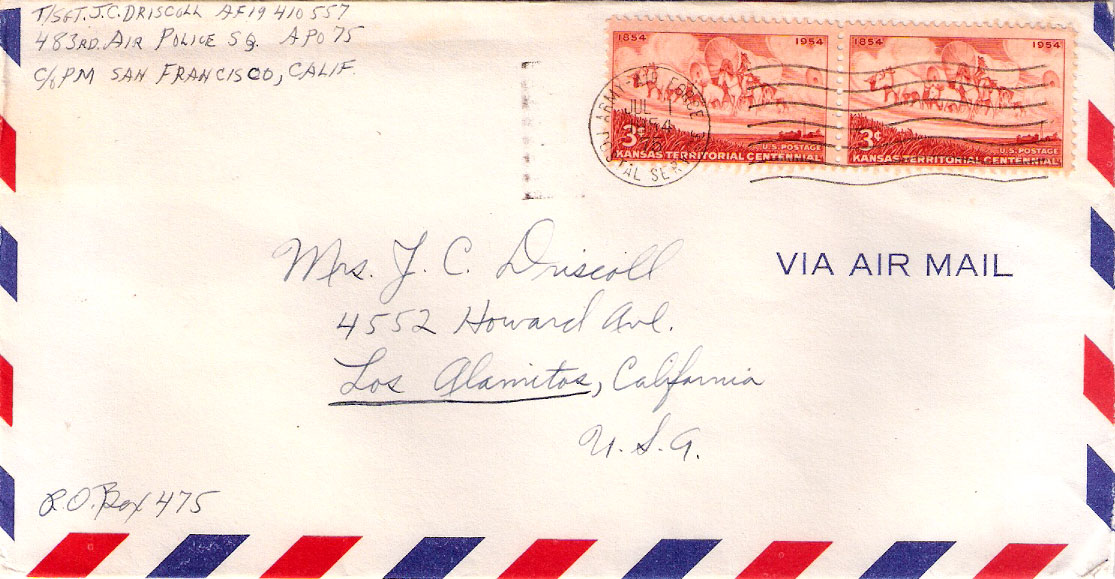 T/SGT. J.C. DRISCOLL AF19 410 557
483RD. AIR POLICE SQ. APO 75
C/O PM SAN FRANCISCO, CALIF.
1854 1954
3¢
U.S. POSTAGE
KANSAS TERRITORIAL CENTENNIAL
1854 1954
3¢
U.S. POSTAGE
KANSAS TERRITORIAL CENTENNIAL
ARMY-AIR FORCE POSTAL SERVICE
JUL
1
VIA AIR MAIL
Mrs. J. C. Driscoll
4552 Howard Ave.
Los Alamitos, California
U.S.A.
P.O. Box 475